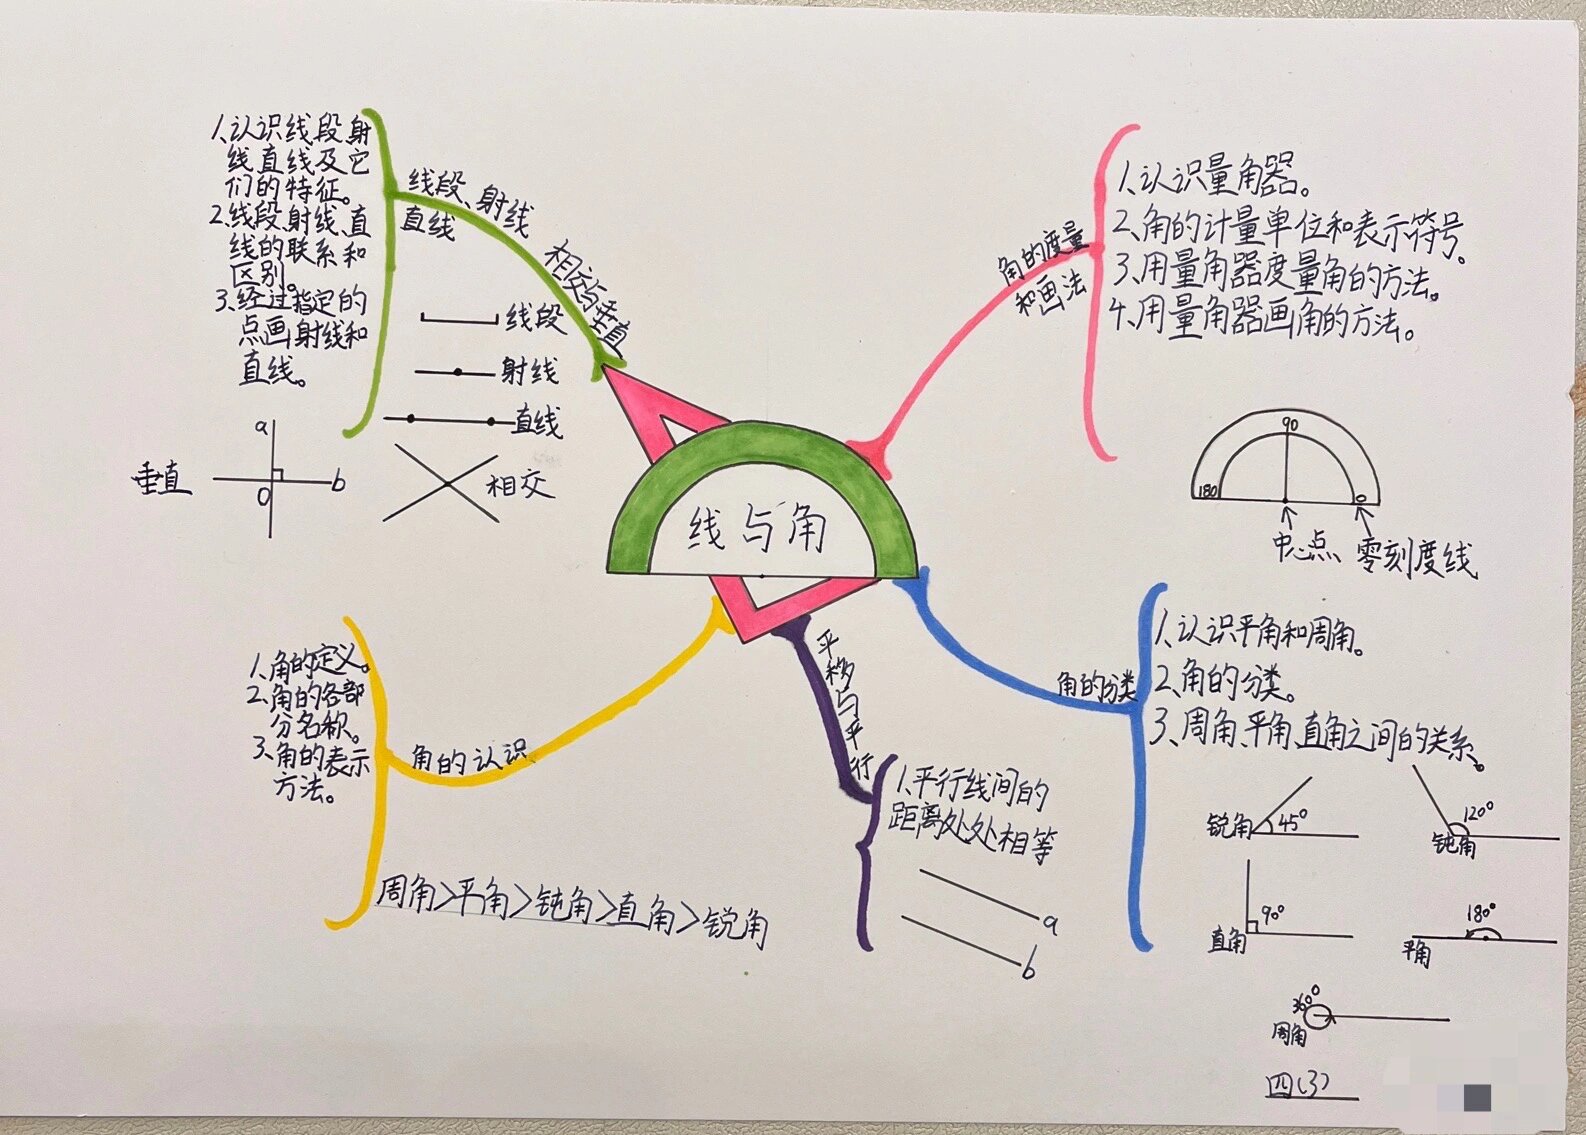 线与角
线段、射线
直线
相交与垂直
1、认识线段射
线直线及它
们的特征。
2、线段、射线、直
线的联系和
区别。
3、经过指定的
点画射线和
直线。
线段
射线
直线
相交
垂直
a
b
O
角的度量
和画法
1、认识量角器。
2、角的计量单位和表示符号。
3、用量角器度量角的方法。
4、用量角器画角的方法。
90
180
0
中心点
零刻度线
角的分类
1、认识平角和周角。
2、角的分类。
3、周角、平角、直角之间的关系。
锐角
45°
钝角
120°
直角
90°
平角
180°
周角
360°
平移与平行
1、平行线间的
距离处处相等
a
b
角的认识
1、角的定义。
2、角的各部
分名称。
3、角的表示
方法。
周角>平角>钝角>直角>锐角
四(3)